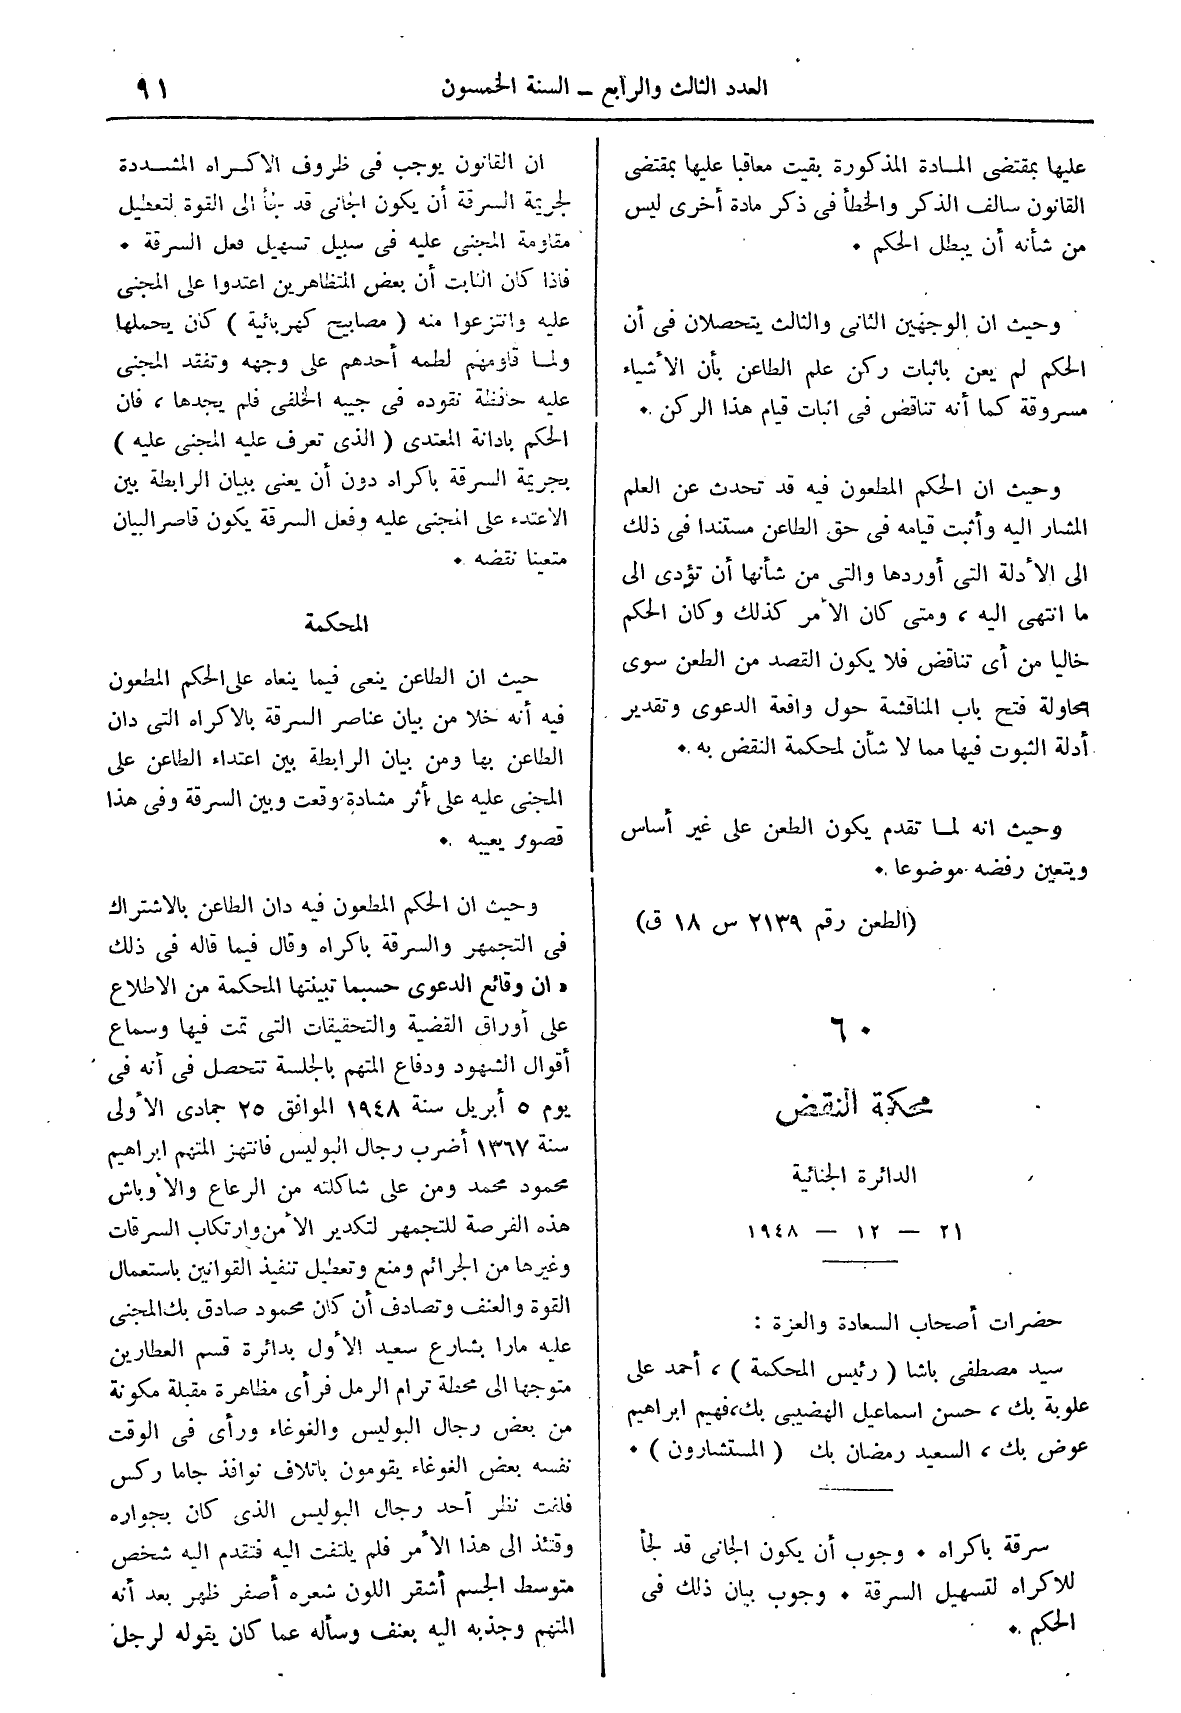 العدد الثالث والرابع – السنة الخمسون
٩١
عليها بمقتضى المادة المذكورة بقيت معاقبا عليها بمقتضى
القانون سالف الذكر والخطأ فى ذكر مادة أخرى ليس
من شأنه أن يبطل الحكم ٠
وحيث ان الوجهين الثانى والثالث يتحصلان فى أن
الحكم لم يعن باثبات ركن علم الطاعن بأن الأشياء
مسروقة كما أنه تناقض فى اثبات قيام هذا الركن ٠
وحيث ان الحكم المطعون فيه قد تحدث عن العلم
المشار اليه وأثبت قيامه فى حق الطاعن مستندا فى ذلك
الى الأدلة التى أوردها والتى من شأنها أن تؤدى الى
ما انتهى اليه ، ومتى كان الأمر كذلك وكان الحكم
خاليا من أى تناقض فلا يكون القصد من الطعن سوى
محاولة فتح باب المناقشة حول واقعة الدعوى وتقدير
أدلة الثبوت فيها مما لا شأن لمحكمة النقض به ٠
وحيث انه لما تقدم يكون الطعن على غير أساس
ويتعين رفضه موضوعا ٠
(الطعن رقم ٢١٣٩ س ١٨ ق)
٦٠
محكمة النقض
الدائرة الجنائية
٢١ – ١٢ – ١٩٤٨
حضرات أصحاب السعادة والعزة :
سيد مصطفى باشا ( رئيس المحكمة ) ، أحمد على
علوبة بك ، حسن اسماعيل الهضيبى بك،فهيم ابراهيم
عوض بك ، السعيد رمضان بك ( المستشارون ) ٠
سرقة باكراه ٠ وجوب أن يكون الجانى قد لجأ
للاكراه لتسهيل السرقة ٠ وجوب بيان ذلك فى
الحكم ٠
ان القانون يوجب فى ظروف الاكراه المشددة
لجريمة السرقة أن يكون الجانى قد لجأ الى القوة لتعطيل
مقاومة المجنى عليه فى سبيل تسهيل فعل السرقة ٠
فاذا كان الثابت أن بعض المتظاهرين اعتدوا على المجنى
عليه وانتزعوا منه ( مصابيح كهربائية ) كان يحملها
ولما قاومهم لطمه أحدهم على وجهه وتفقد المجنى
عليه حافظة نقوده فى جيبه الخلفى فلم يجدها ، فان
الحكم بادانة المعتدى ( الذى تعرف عليه المجنى عليه )
بجريمة السرقة باكراه دون أن يعنى ببيان الرابطة بين
الاعتدء على المجنى عليه وفعل السرقة يكون قاصر البيان
متعينا نقضه ٠
المحكمة
حيث ان الطاعن ينعى فيما ينعاه على الحكم المطعون
فيه أنه خلا من بيان عناصر السرقة بالاكراه التى دان
الطاعن بها ومن بيان الرابطة بين اعتداء الطاعن على
المجنى عليه على أثر مشادة وقعت وبين السرقة وفى هذا
قصور يعيبه ٠
وحيث ان الحكم المطعون فيه دان الطاعن بالاشتراك
فى التجمهر والسرقة باكراه وقال فيما قاله فى ذلك
« ان وقائع الدعوى حسبما تبينتها المحكمة من الاطلاع
على أوراق القضية والتحقيقات التى تمت فيها وسماع
أقوال الشهود ودفاع المتهم بالجلسة تتحصل فى أنه فى
يوم ٥ أبريل سنة ١٩٤٨ الموافق ٢٥ جمادى الأولى
سنة ١٣٦٧ أضرب رجال البوليس فانتهز المتهم ابراهيم
محمود محمد ومن على شاكلته من الرعاع والأوباش
هذه الفرصة للتجمهر لتكدير الأمن وارتكاب السرقات
وغيرها من الجرائم ومنع وتعطيل تنفيذ القوانين باستعمال
القوة والعنف وتصادف أن كان محمود صادق بك المجنى
عليه مارا بشارع سعيد الأول بدائرة قسم العطارين
متوجها الى محطة ترام الرمل فرأى مظاهرة مقبلة مكونة
من بعض رجال البوليس والغوغاء ورأى فى الوقت
نفسه بعض الغوغاء يقومون باتلاف نوافذ جاما ركس
فلفت نظر أحد رجال البوليس الذى كان بجواره
وقتئذ الى هذا الأمر فلم يلتفت اليه فتقدم اليه شخص
متوسط الجسم أشقر اللون شعره أصفر ظهر بعد أنه
المتهم وجذبه اليه بعنف وسأله عما كان يقوله لرجل